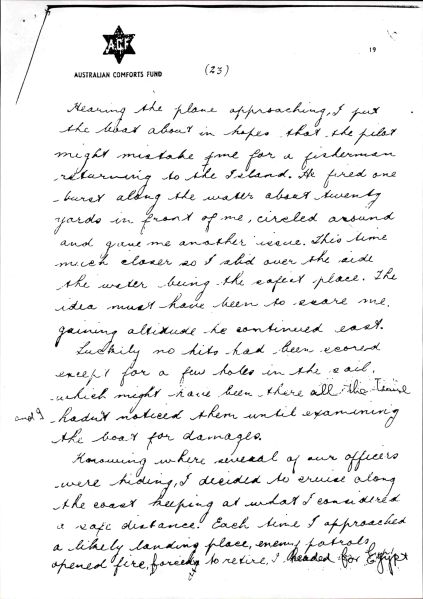 A.C.F.
19
AUSTRALIAN COMFORTS FUND
(23)
Hearing the plane approaching, I put
the boat about in hopes that the pilot
might mistake me for a fisherman
returning to the Island. He fired one
burst along the water about twenty
yards in front of me, circled around
and gave me another issue. This time
much closer so I slid over the side
the water being the safest place. The
idea must have been to scare me,
gaining altitude he continued east.
Luckily no hits had been scored
except for a few holes in the sail,
which might have been there all the time
and I hadn't noticed them until examining
the boat for damages.
Knowing where several of our officers
were hiding, I decided to cruise along
the coast keeping at what I considered
a safe distance. Each time I approached
a likely landing place, enemy patrols
opened fire, forcing to retire, I headed for Egypt